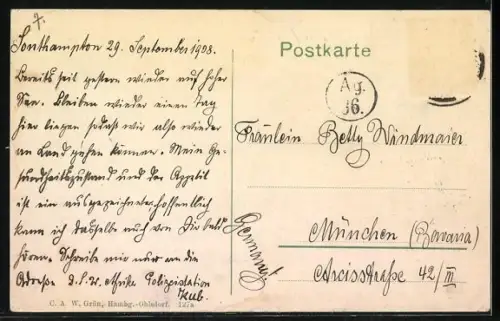 Southampton 29. September 1908.
Bereits seit gestern wieder auf hoher
See. Bleiben wieder einen Tag
hier liegen sodaß wir also wieder
an Land gehen können. Mein Ge-
sundheitszustand und der Appetit
ist ein ausgezeichneter hoffentlich
kann ich dasselbe auch von Dir bald
hören. Schreibe mir nur an die
Adresse D.S.W. Afrika Polizeistation
Kub.
C. A. W. Grün, Hambg.-Ohlsdorf.
Postkarte
Ag.
36.
Fräulein Betty Windmaier
München (Bavaria)
Germany
Arcisstraße 42/III